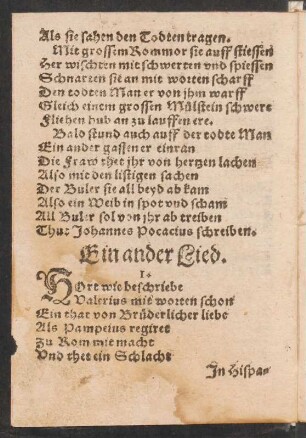 Als sie sahen den Todten tragen.
Mit grossem Rommor sie auff stiessen
Her wischten mit schwerten vnd spiessen
Schnarten sie an mit worten scharff
Den todten Man er von jhm warff
Gleich einem grossen Mülstein schwere
Fliehen hub an zu lauffen ere.
Bald stund auch auff der todte Man
Ein ander gassen er einran
Die Fraw thet jhr von hertzen lachen
Also mit den listigen sachen
Der Buler sie all beyd ab kam
Also ein Weib in spot vnd scham
All Buler sol von jhr ab treiben
Thut Johannes Pocacius schreiben.
Ein ander Lied.
1.
HOrt wie beschriebe
Valerius mit worten schon
Ein that von Brüderlicher liebe
Als Pampeius regiret
Zu Rom mit macht
Vnd thet ein Schlacht
In Hispa-